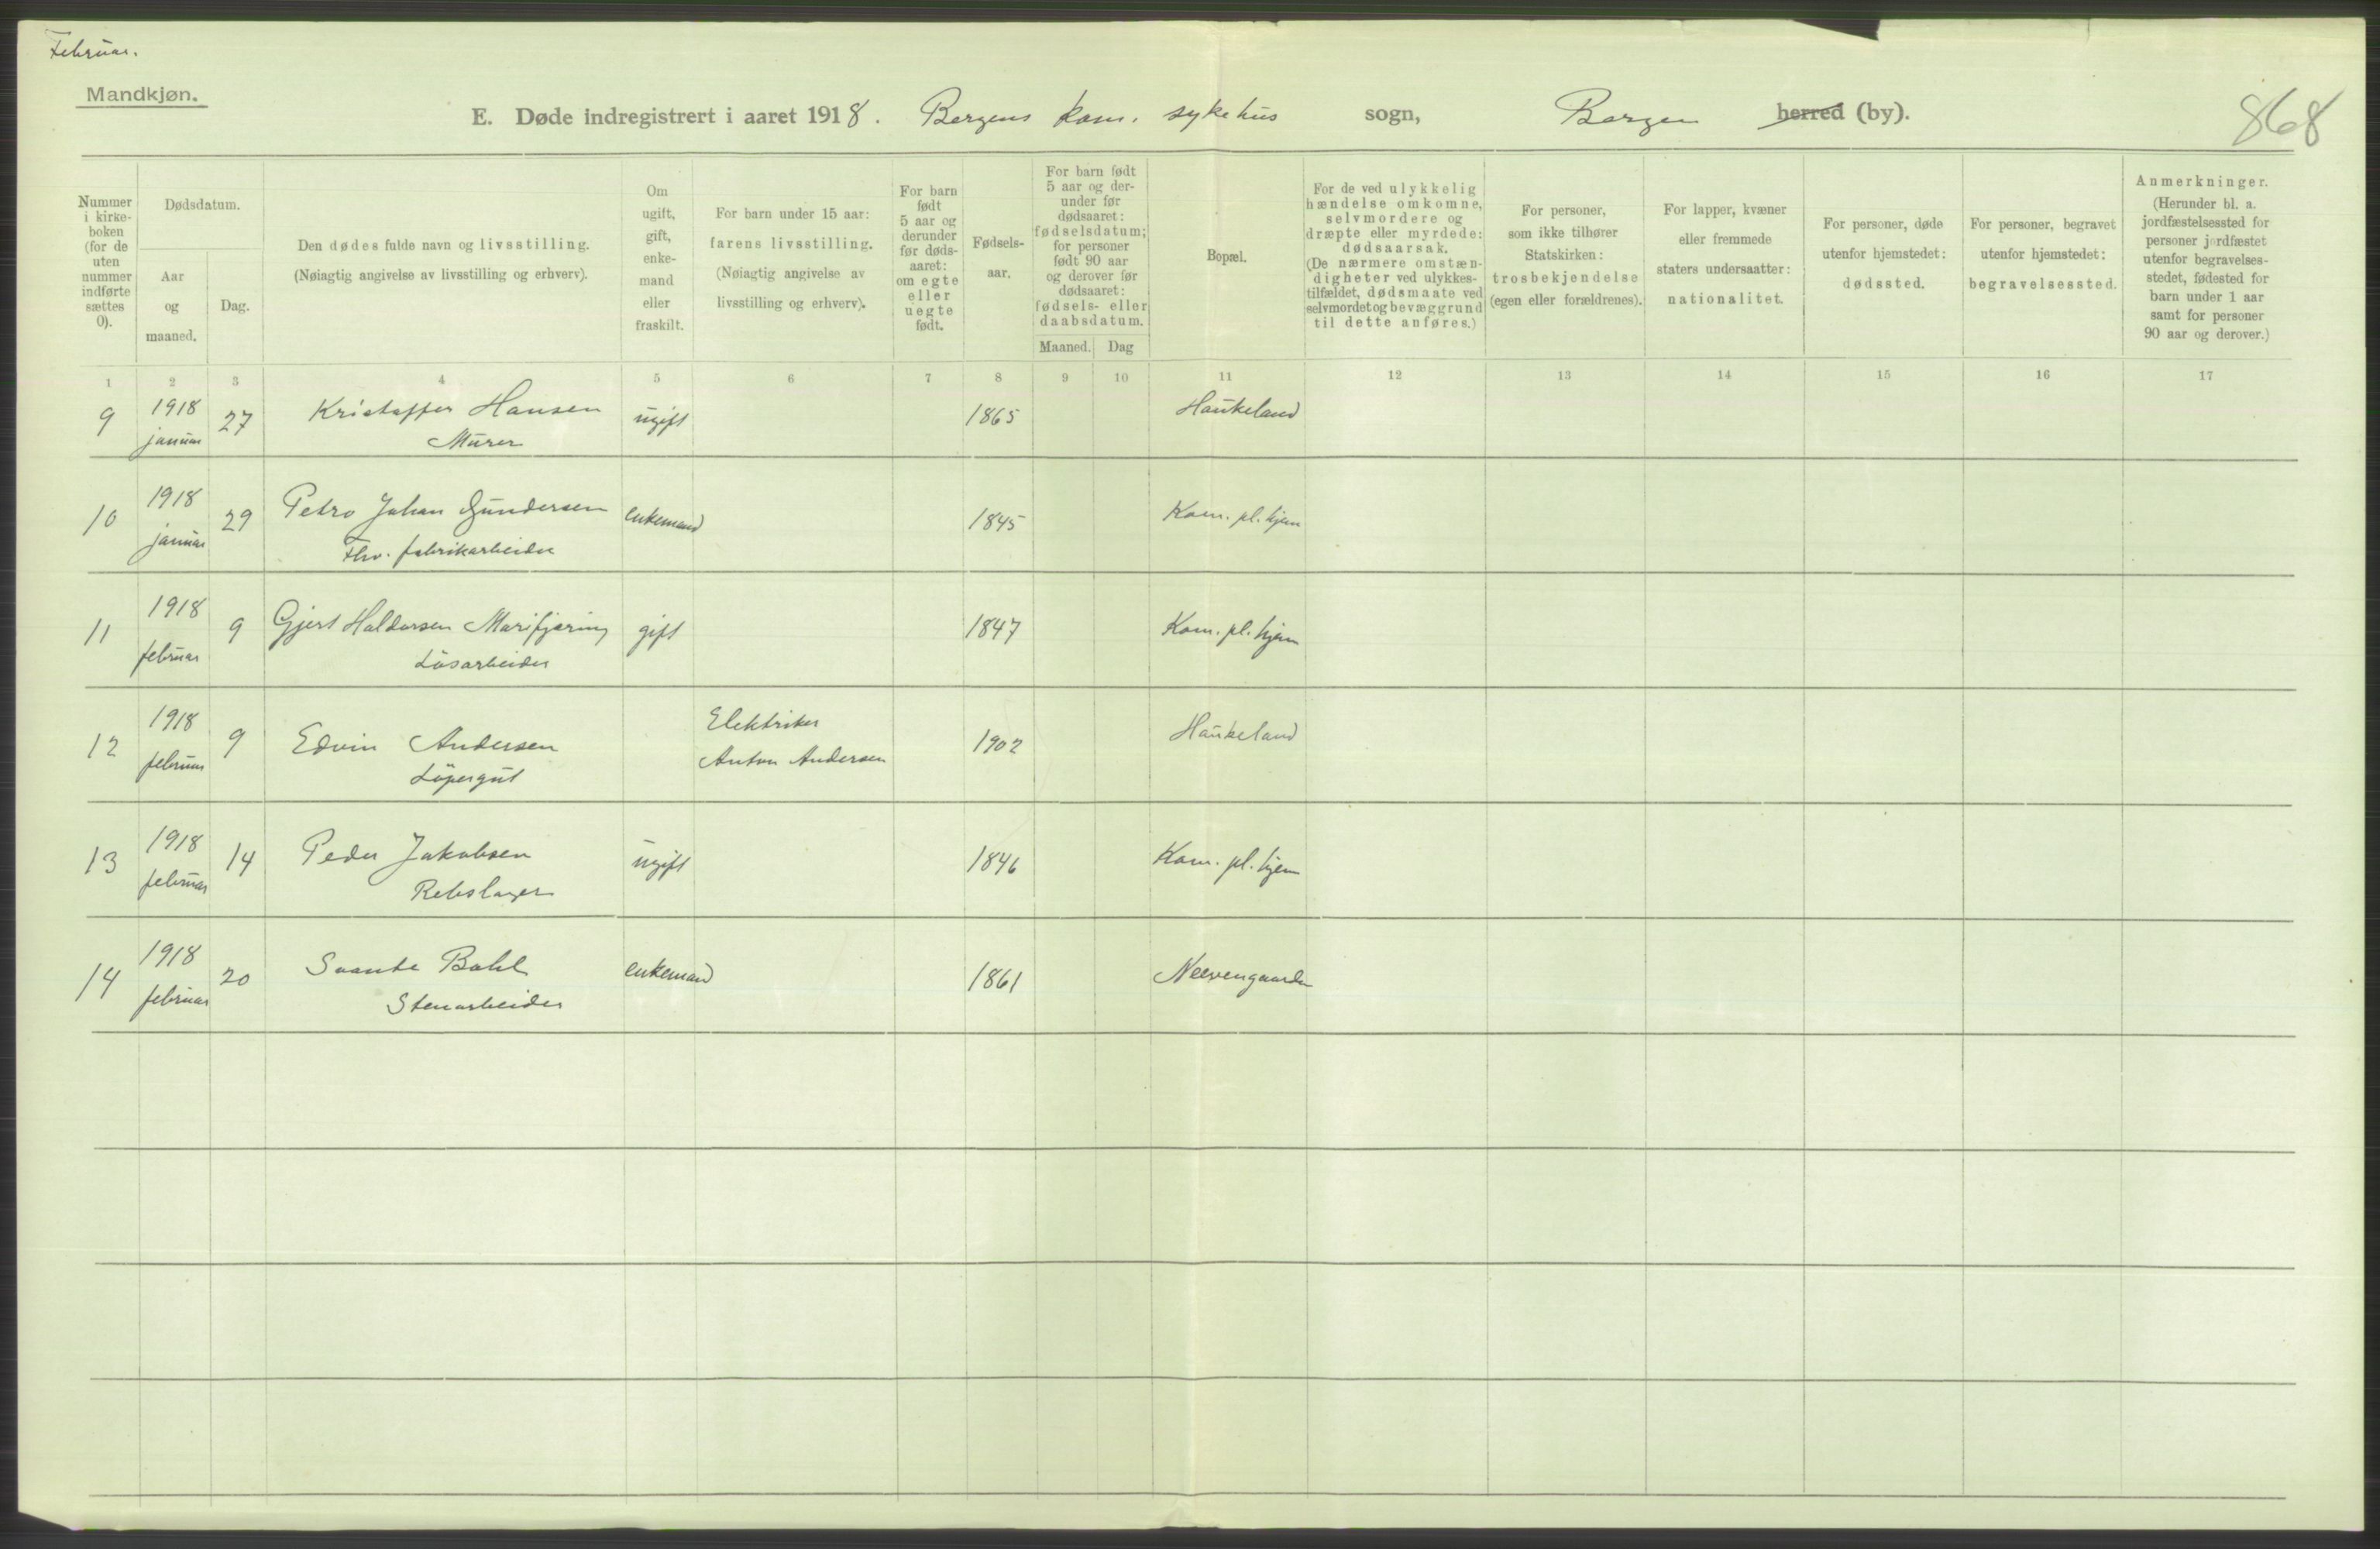 Februar.
Mandkjøn.
E. Døde indregistrert i aaret 1918. Bergens kom. sykehus sogn, Bergen herred (by).
868
Nummer i kirke- boken (for de uten nummer indførte sættes 0).
Dødsdatum.
Aar og maaned.
Dag.
Den dødes fulde navn og livsstilling.
(Nøiagtig angivelse av livsstilling og erhverv).
Om ugift, gift, enke- mand eller fraskilt.
For barn under 15 aar: farens livsstilling. (Nøiagtig angivelse av livsstilling og erhverv).
For barn født 5 aar og derunder før døds- aaret: om egte eller uegte født.
Fødsels- aar.
For barn født 5 aar og der- under før dødsaaret: fødselsdatum; for personer født 90 aar og derover før dødsaaret: fødsels- eller daabsdatum.
Maaned. Dag
Bopæl.
For de ved ulykkelig hændelse omkomne, selvmordere og dræpte eller myrdede: dødsaarsak. (De nærmere omstæn- digheter ved ulykkes- tilfældet, dødsmaate ved selvmordet og bevæggrund til dette anføres.)
For personer, som ikke tilhører Statskirken: trosbekjendelse (egen eller forældrenes).
For lapper, kvæner eller fremmede staters undersaatter: nationalitet.
For personer, døde utenfor hjemstedet: dødssted.
For personer, begravet utenfor hjemstedet: begravelsessted.
Anmerkninger. (Herunder bl. a. jordfæstelsessted for personer jordfæstet utenfor begravelses- stedet, fødested for barn under 1 aar samt for personer 90 aar og derover.)
1 2 3 4 5 6 7 8 9 10 11 12 13 14 15 16 17
9 1918 januar 27 Kristoffer Hansen ugift 1865 Haukeland
Murer
10 1918 januar 29 Petro Johan Gundersen enkemand 1845 Kom. pl. hjem
Fhv. fabrikarbeider
11 1918 februar 9 Gjert Haldorsen Marifjæring gift 1847 Kom. pl. hjem
Løsarbeider
12 1918 februar 9 Edvin Andersen Elektriker 1902 Haukeland
Løpergut Anton Andersen
13 1918 februar 14 Peder Jakobsen ugift 1846 Kom. pl. hjem
Rebslager
14 1918 februar 20 Svante Bohl enkemand 1861 Neevengaarden
Stenarbeider